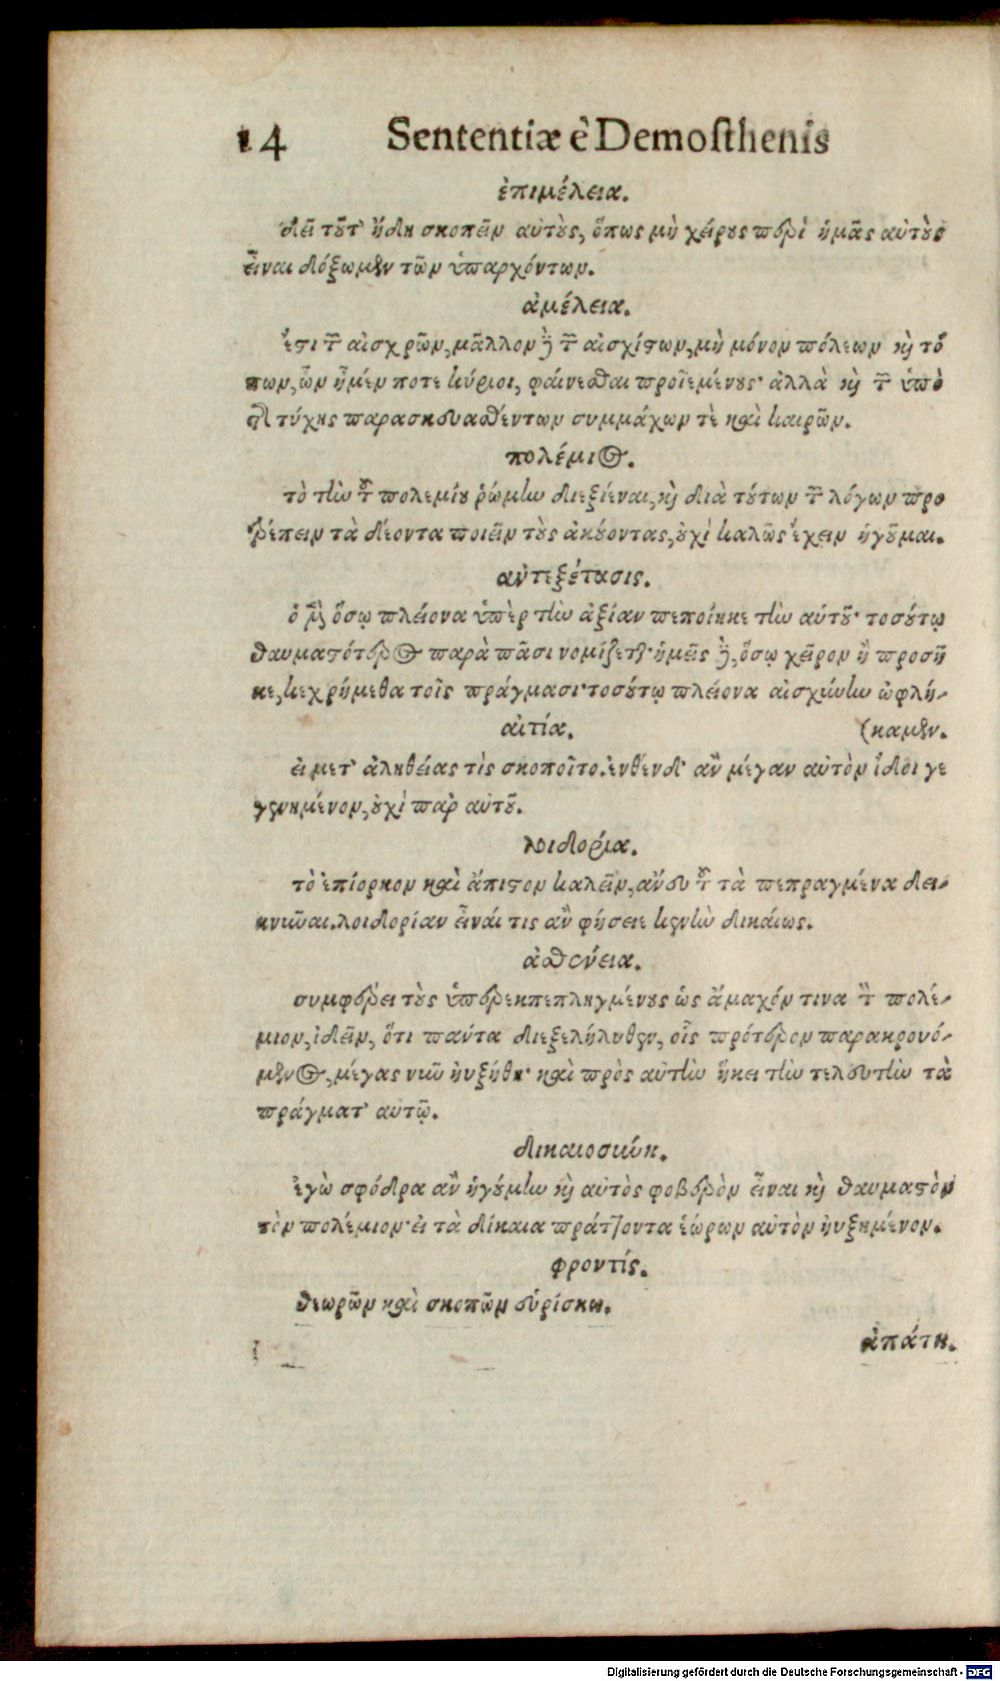 14 Sententiæ è Demosthenis
ἐπιμέλεια.
δεῖ τοῦτ' ἤδη σκοπεῖν αὐτοὺς, ὅπως μὴ χείρους περὶ ἡμᾶς αὐτοὺς
εἶναι δόξωμεν τῶν ὑπαρχόντων.
ἀμέλεια.
ἔστι τῶν αἰσχρῶν, μᾶλλον δὲ τῶν αἰσχίστων, μὴ μόνον πόλεων καὶ τό
πων, ὧν ἦμέν ποτε κύριοι, φαίνεσθαι προϊεμένους· ἀλλὰ καὶ τῶν ὑπὸ
τῆς τύχης παρασκευασθέντων συμμάχων τὲ καὶ καιρῶν.
πολέμιος.
τὸ τὴν τοῦ πολεμίου ῥώμην διεξιέναι, καὶ διὰ τούτων τῶν λόγων προ
τρέπειν τὰ δέοντα ποιεῖν τοὺς ἀκούοντας, οὐχὶ καλῶς ἔχειν ἡγοῦμαι.
ἀντεξέτασις.
ὁ μὲν ὅσῳ πλείονα ὑπὲρ τὴν ἀξίαν πεποίηκε τὴν αὑτοῦ· τοσούτῳ
θαυμαστότερος παρὰ πᾶσι νομίζεται· ἡμεῖς δὲ, ὅσῳ χεῖρον ἢ προσῆ
κε, κεχρήμεθα τοῖς πράγμασι· τοσούτῳ πλείονα αἰσχύνην ὠφλή-
αἰτία. (καμεν.
εἰ μετ' ἀληθείας τὶς σκοποῖτο. ἐνθένδ' ἂν μέγαν αὐτὸν ἴδοι γε
γενημένον, οὐχὶ παρ αὐτοῦ.
λοιδορία.
τὸ ἐπίορκον καὶ ἄπιστον καλεῖν, ἄνευ τοῦ τὰ πεπραγμένα δει-
κνύναι. λοιδορίαν εἶναί τις ἂν φήσειε κενὴν δικαίως.
ἀσθένεια.
συμφέρει τοὺς ὑπερεκπεπληγμένους ὡς ἄμαχόν τινα τὸν πολέ-
μιον, ἰδεῖν, ὅτι πάντα διεξελήλυθεν, οἷς πρότερον παρακρουό-
μενος, μέγας νῦν ηὐξήθη· καὶ πρὸς αὐτὴν ἥκει τὴν τελευτὴν τὰ
πράγματ' αὐτῷ.
δικαιοσύνη.
ἐγὼ σφόδρα ἂν ἡγούμην καὶ αὐτὸς φοβερὸν εἶναι καὶ θαυμαστὸν
τὸν πολέμιον· εἰ τὰ δίκαια πράττοντα ἑώρων αὐτὸν ηὐξημένον.
φροντίς.
θεωρῶν καὶ σκοπῶν εὑρίσκω.
ἀπάτη.
Digitalisierung gefördert durch die Deutsche Forschungsgemeinschaft - DFG